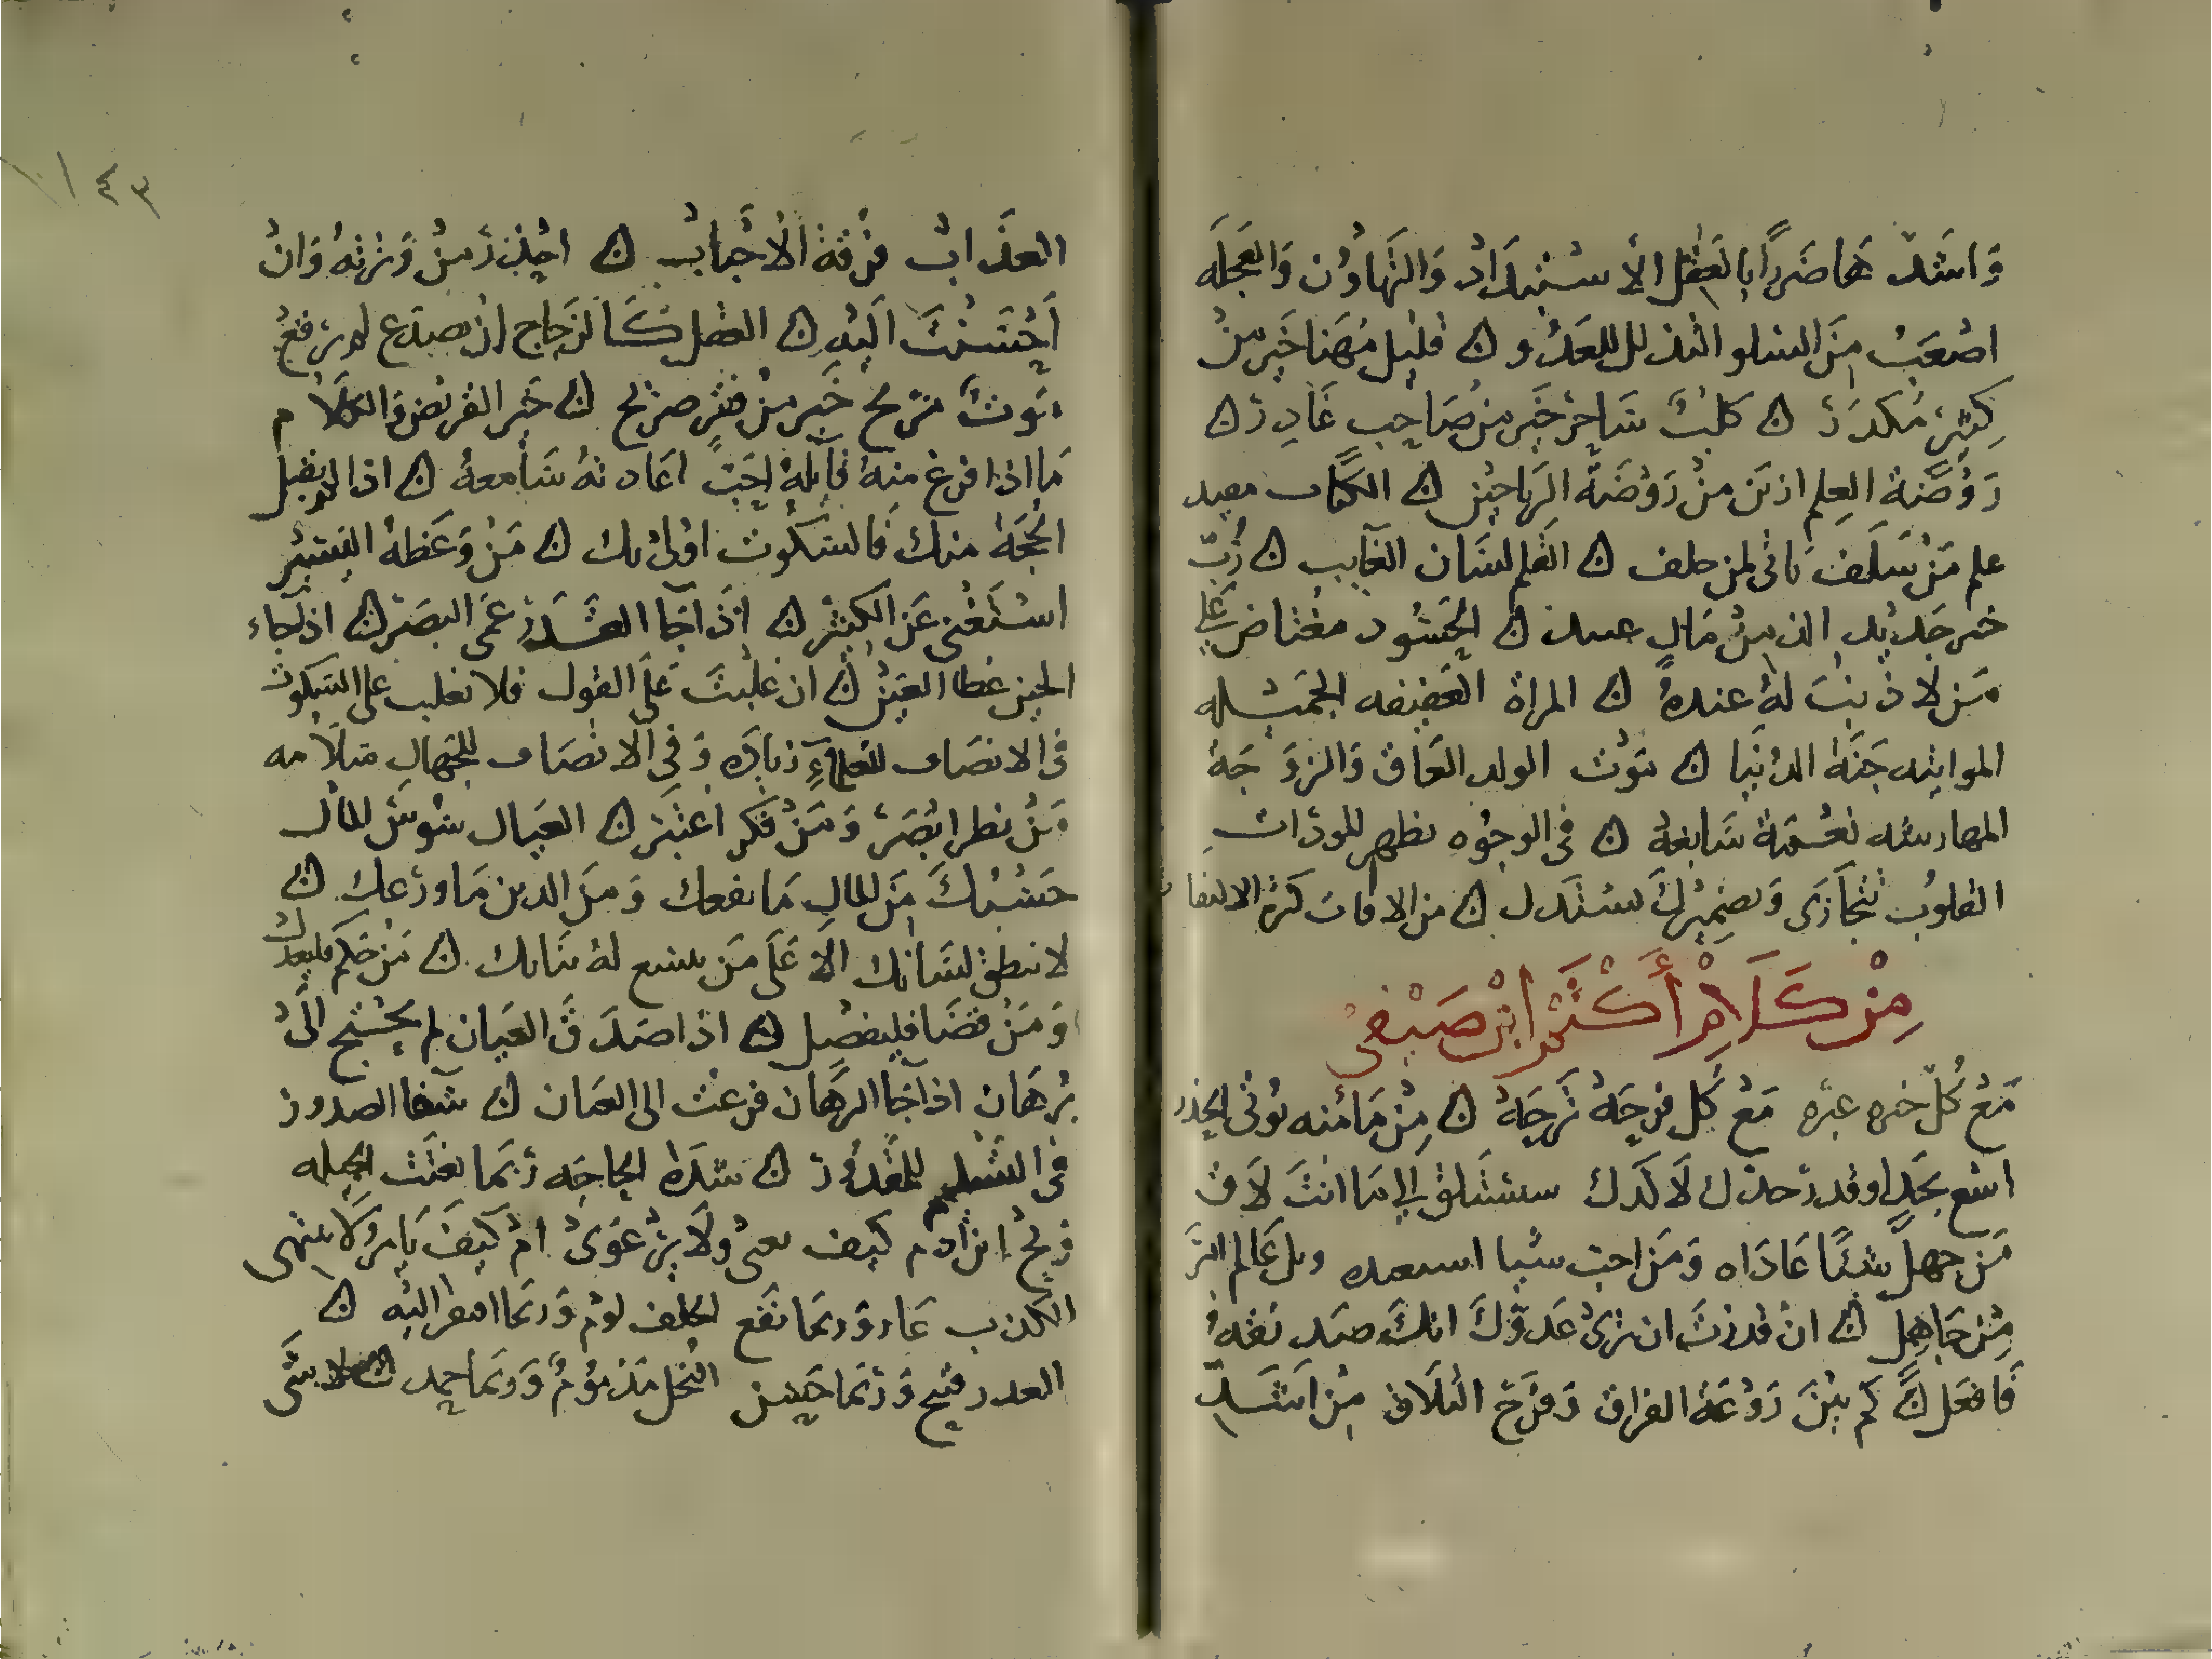 وَاشَدّ هَا ضَرَرًا بِالعَقل الاستبدَاد وَالتَهاوُن وَالعَجلَه
اصْعَبُ مِنَ السلو التذلل للعَدُو ن قليل مُهَنا خَير مِنْ
كثير مُكدَر ن كلبٌ شَاكر خَير من صَاحِب غَادِر ن
رَوْضَة العِلم ازيَن مِنْ رَوْضَة الرَياحين ن الكتاب مفيد
علم مَنْ سَلَف باقي لمن خلف ن القلم لسَان الغايب ن رُبّ
خبر جَديد الذ مِنْ مَال عتيد ن الحَسُود مغتاض عَلي
مَن لا ذنبَ لهُ عندهُ ن المراة العَفيفه الجميله
المواتيه جَنّة الدُنيَا ن مَوْت الولد العَاق وَالزوَجَة
المهارشه نعْمَة سَابغة ن في الوجُوه تظهر المودّات
القلوُب تتجَازَى وَبضَمِيرِكَ تستدل ن من الافات كثرة الالتفا
مِنْ كَلَامْ أَكْثَمْ ابْن صَيْفي
مَعْ كُل حبره عبره مَعْ كُل فرحَةُ تَرحَةُ ن مِنْ مَأمنه يُوتى الحذر
اسْعَ بجَدٍ او قدر حدك لَا كَدك ستسَلق الي مَا انتَ لَاق
مَن جهل شيئًا عَادَاه وَمَن احب شيا استعبده ويل عَالم امرَ
مِنْ جَاهِل ن انْ قدرْتَ ان ترىْ عَدوّكَ انكَ صَديقهُ
فَافعَل ن كَم بَيْنَ رَوْعَة الفراق وَفرَح التلَاق مِنْ اشَدِّ
العذَاب فرْقة الْاحْبَاب ن احْذر مِنْ وَترتهُ وَانْ
اَحْسَنْتَ اليْه ن العَقل كَالزجَاج اذ تصدَع لم يرقعْ
مَوتٌ مريح خَير مِنْ فقرٍ صريح ن خَير القريض وَالكلَام
مَا اذا فرغ منهُ قَايلهُ احَبّ اعَادتهُ سَامعهُ ن اذا لم يقبل
الحُجَة منك فَالسكُوت اوْلى بك ن مَنْ وَعَظهُ اليَسير
استَغنى عَن الكثير ن اذَا جَا القَدرْ عَمي البَصَر ن اذا جَاء
الحين غطا العَين ن ان غلبْتَ عَلَى القول فلا تغلب على السكوت
في الانصَاف للعلماءِ زيَادَه وَفي الْانصَاف للجهَال مَلامه
مَنْ نظر ابْصَرَ وَمَنْ فكر اعتبَر ن العيَال سُوسُ المال
حَسْبكَ مِنَ المال مَا نفعك وَمنَ الدين مَا ورَعك ن
لا تنطق لسَانك الا عَلَى مَن يتسع لهُ شانك ن مَنْ حَكم فليعدل
وَمَنْ قضَا فليفصِل ن اذا صدَقَ العيَان لم يحْتج الَىْ
برهَان اذا جَا الرهَان فزعْت الى العيَان ن شفا الصدور
في التسليم للمقدُور ن شدَة الحاجَه ربَما بعثت الحيله
وَيحْ ابن ادم كيف يعيْ وَلَا يرْعَوى امْ كيفَ يَامر وَلَا ينتهى
الكذب عَار وَربمَا نفَع الحلف لوم وَربمَا اضطر اليْه ن
الغدر قبيح وَربمَا حَسن البُخل مَذمُومٌ وَربمَا حمد ن لا شَى